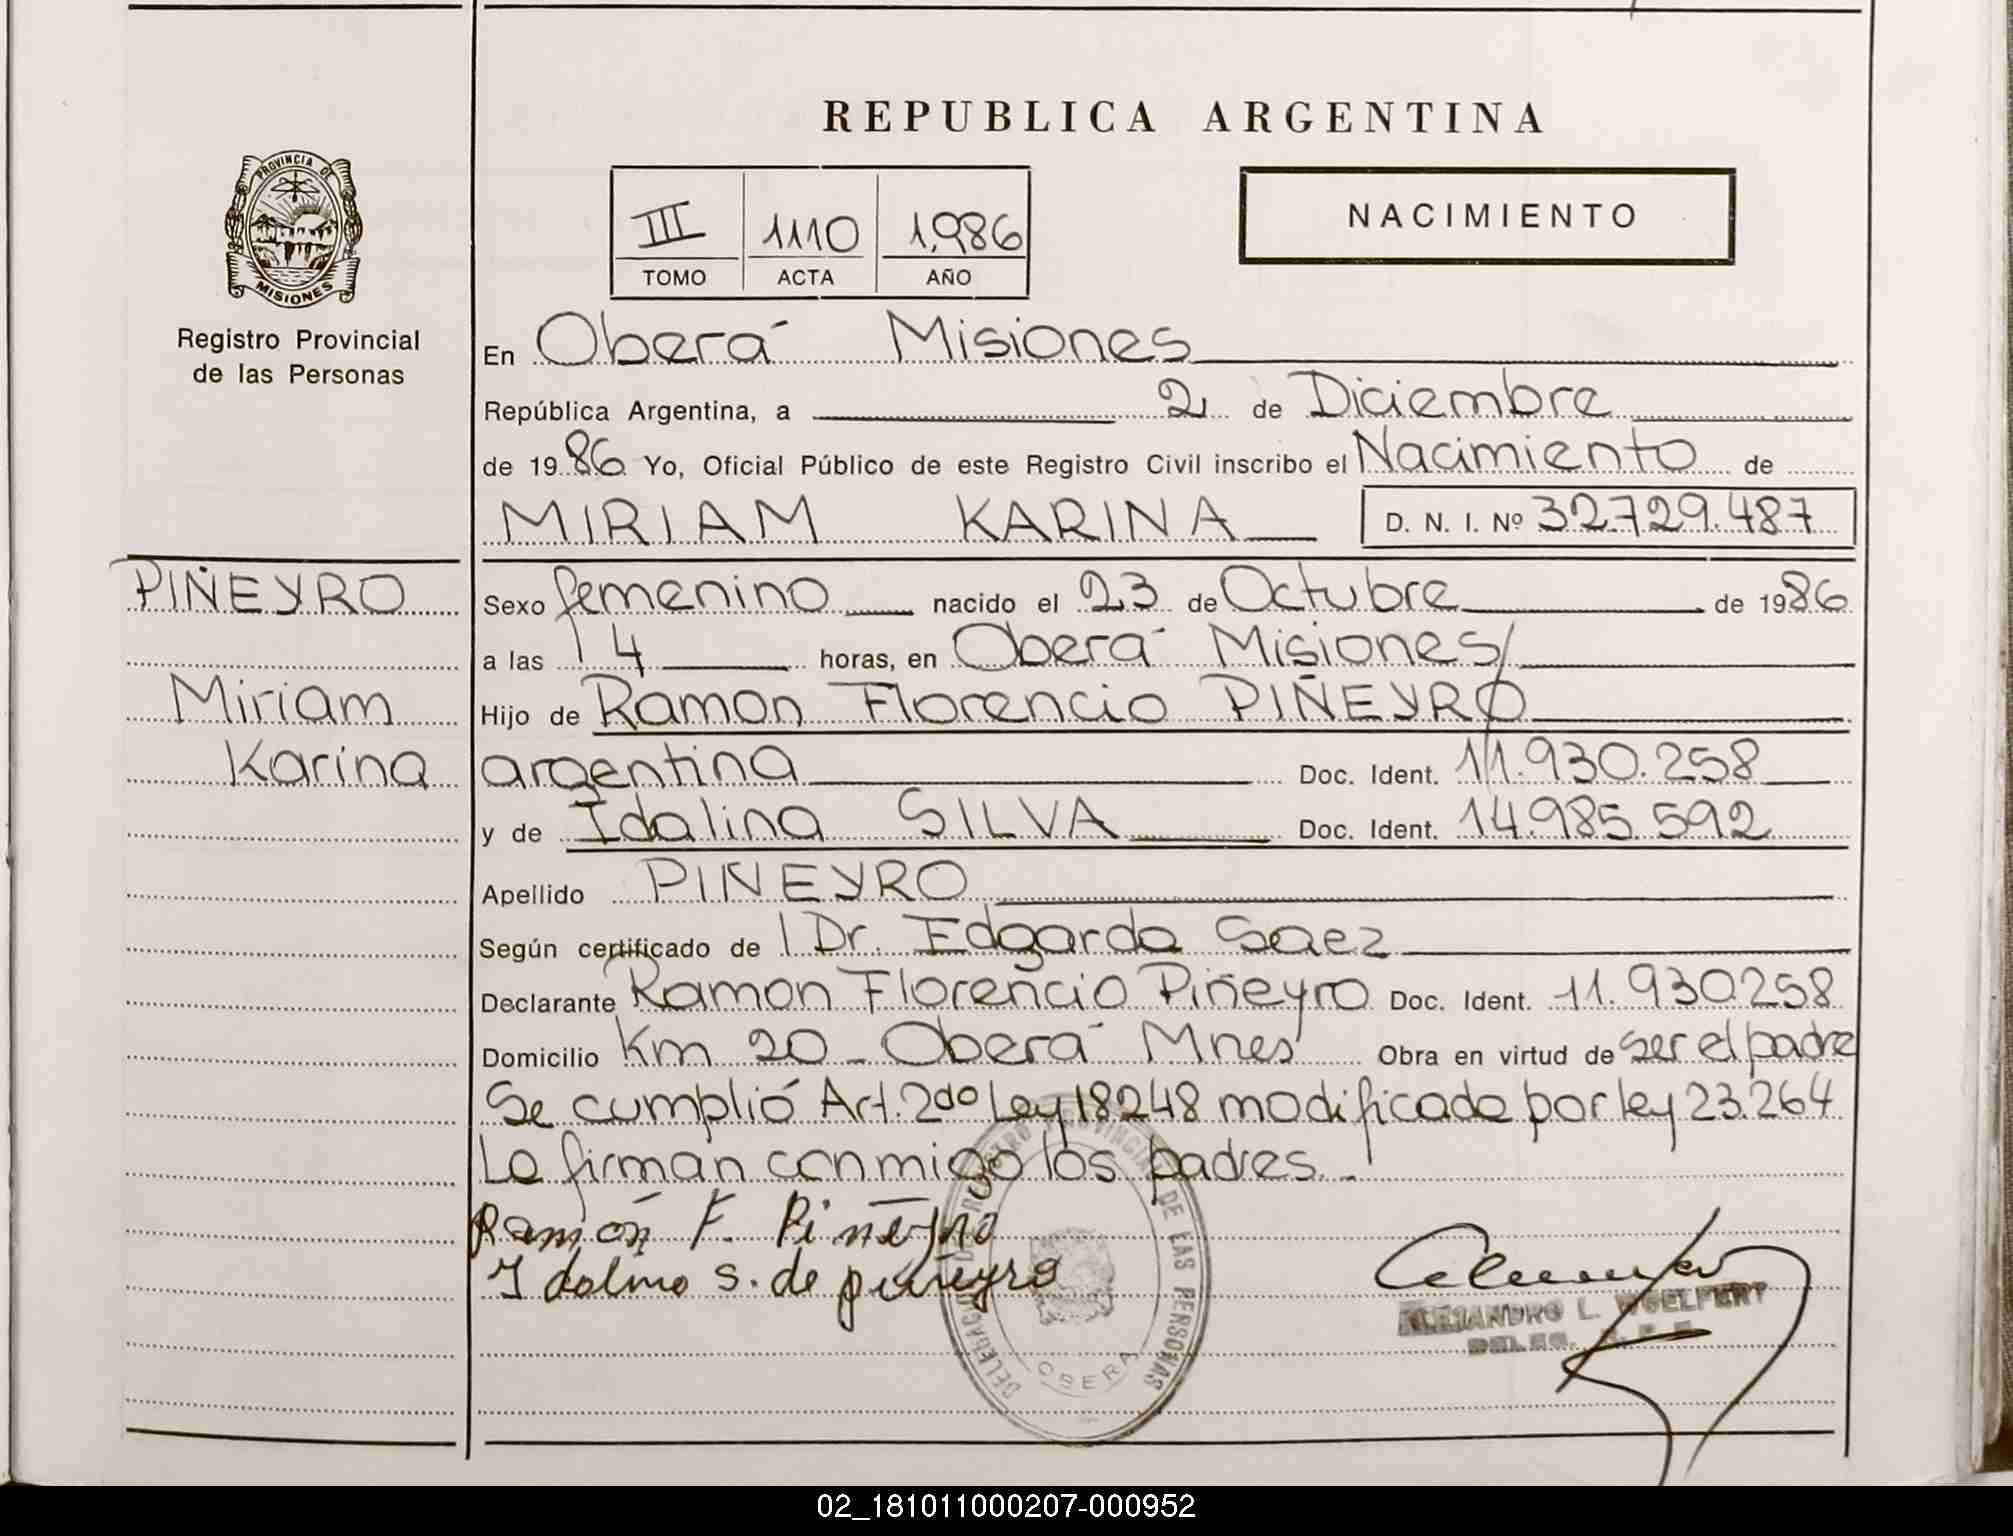 REPUBLICA ARGENTINA
PROVINCIA DE
MISIONES
Registro Provincial
de las Personas
III 1110 1,986
TOMO ACTA AÑO
NACIMIENTO
En Oberá Misiones
República Argentina, a 2 de Diciembre
de 1986 Yo, Oficial Público de este Registro Civil inscribo el Nacimiento de
MIRIAM KARINA D. N. I. Nº 32.729.487
PIÑEYRO
Miriam
Karina
Sexo femenino nacido el 23 de Octubre de 1986
a las 14 horas, en Oberá Misiones/
Hijo de Ramon Florencio PIÑEYRO
argentina Doc. Ident. 11.930.258
y de Idalina SILVA Doc. Ident. 14.985.592
Apellido PIÑEYRO
Según certificado de Dr. Edgardo Saez
Declarante Ramon Florencio Piñeyro Doc. Ident. 11.930.258
Domicilio Km 20 - Oberá Mnes Obra en virtud de ser el padre
Se cumplió Art. 2do Ley 18248 modificado por ley 23.264
Lo firman conmigo los padres.-
Ramón F. Piñeyro
Idalina S. de piñeyro
REGISTRO PROVINCIAL DE LAS PERSONAS
OBERA
ALEJANDRO L. WOELFERT
02_181011000207-000952